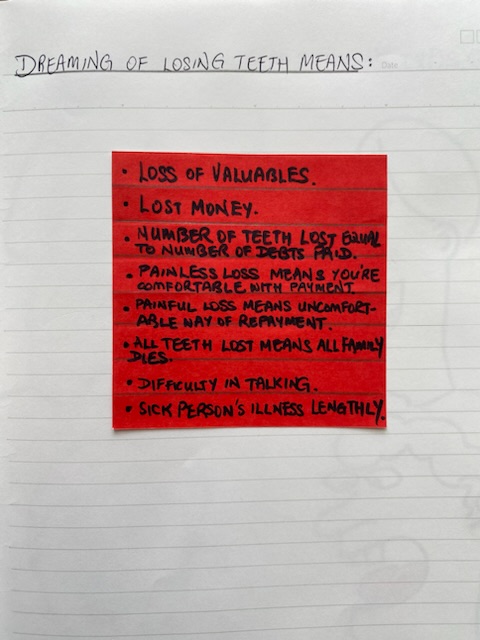 DREAMING OF LOSING TEETH MEANS:
Date
• LOSS OF VALUABLES.
• LOST MONEY.
• NUMBER OF TEETH LOST EQUAL
TO NUMBER OF DEBTS PAID.
• PAINLESS LOSS MEANS YOU'RE
COMFORTABLE WITH PAYMENT.
• PAINFUL LOSS MEANS UNCOMFORT-
ABLE WAY OF REPAYMENT.
• ALL TEETH LOST MEANS ALL FAMILY
DIES.
• DIFFICULTY IN TALKING.
• SICK PERSON'S ILLNESS LENGTHLY.